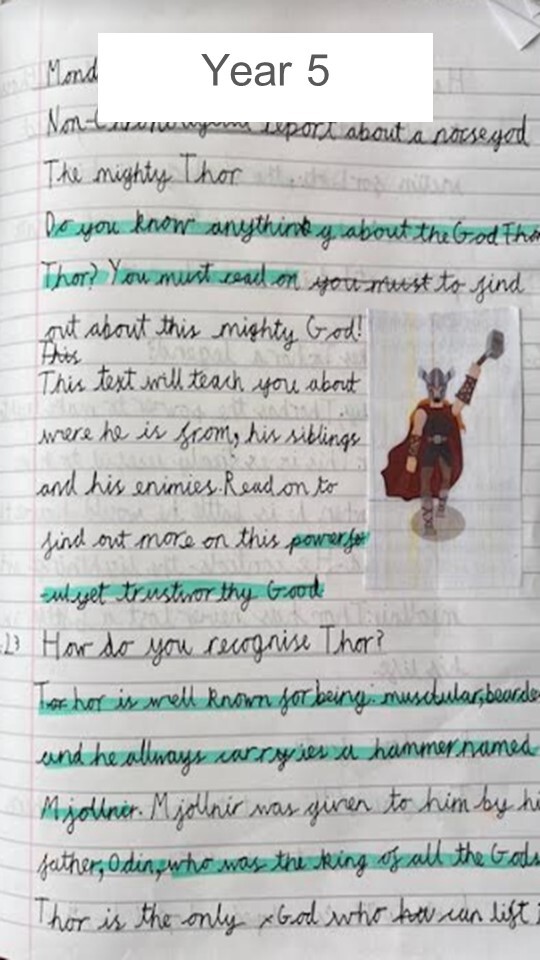 Year 5
Mond
Non- report about a norse god
The mighty Thor
Do you know anything about the God Tho
Thor? You must read on you must to find
out about this mighty God!
This
This text will teach you about
were he is from, his siblings
and his enimies. Read on to
find out more on this powerf
ul yet trustworthy Good
23 How do you recognise Thor?
Thor is well known for being: musclular, bearde
and he allways carryies a hammer named
Mjollnir. Mjollnir was given to him by hi
father, Odin, who was the king of all the Gods
Thor is the only God who can lift i